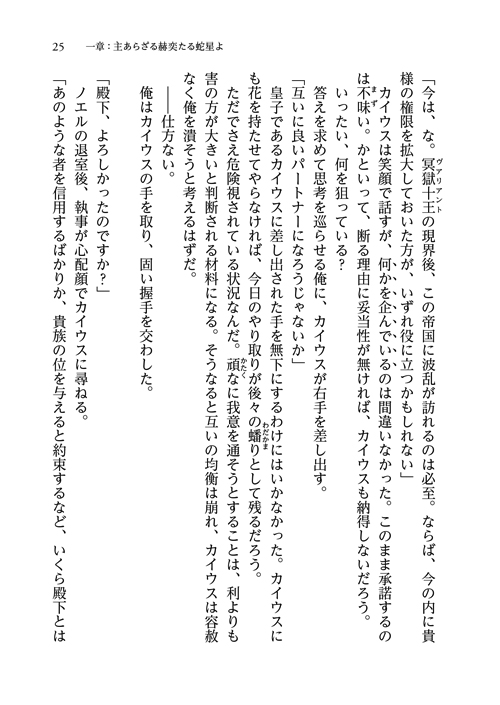 25　一章：主あらざる赫奕たる蛇星よ
「今は、な。冥獄十王の現界後、この帝国に波乱が訪れるのは必至。ならば、今の内に貴
ヴアリアント
様の権限を拡大しておいた方が、いずれ役に立つかもしれない」
カイウスは笑顔で話すが、何かを企んでいるのは間違いなかった。このまま承諾するの
は不味い。かといって、断る理由に妥当性が無ければ、カイウスも納得しないだろう。
まず
いったい、何を狙っている？
答えを求めて思考を巡らせる俺に、カイウスが右手を差し出す。
「互いに良いパートナーになろうじゃないか」
皇子であるカイウスに差し出された手を無下にするわけにはいかなかった。カイウスに
も花を持たせてやらなければ、今日のやり取りが後々の蟠りとして残るだろう。
わだかま
ただでさえ危険視されている状況なんだ。頑なに我意を通そうとすることは、利よりも
かたく
害の方が大きいと判断される材料になる。そうなると互いの均衡は崩れ、カイウスは容赦
なく俺を潰そうと考えるはずだ。
――仕方ない。
俺はカイウスの手を取り、固い握手を交わした。
「殿下、よろしかったのですか？」
ノエルの退室後、執事が心配顔でカイウスに尋ねる。
「あのような者を信用するばかりか、貴族の位を与えると約束するなど、いくら殿下とは